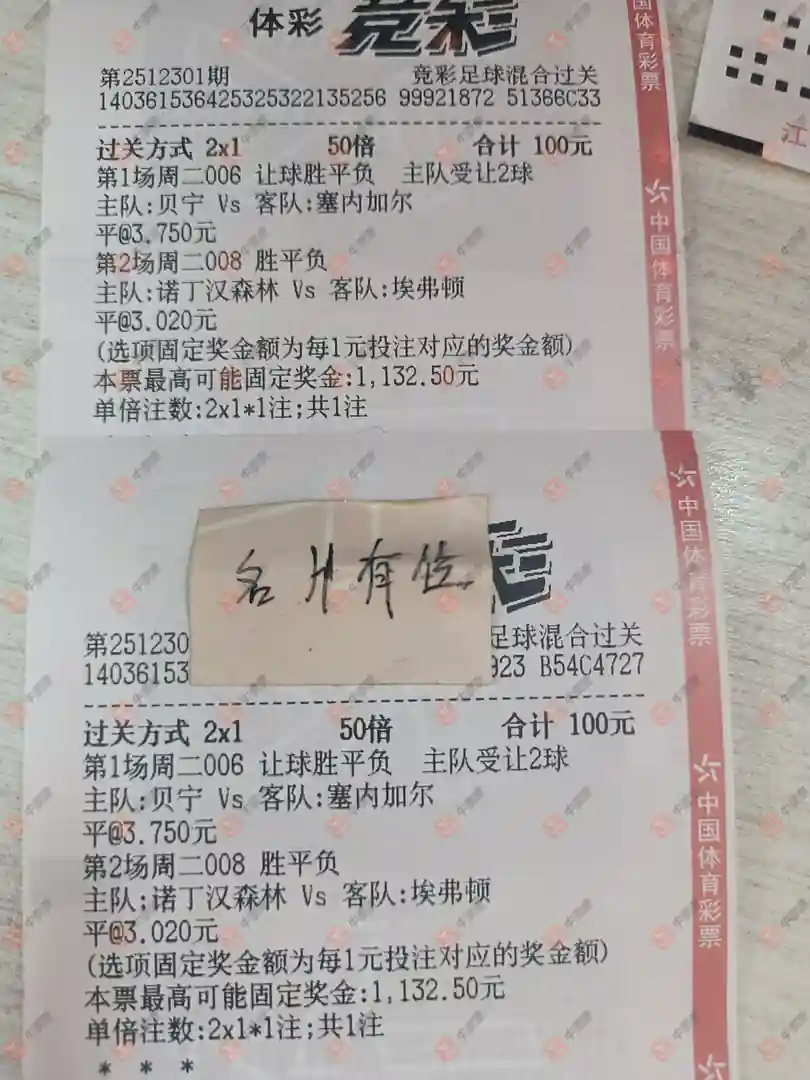 体彩 竞彩
第2512301期 竞彩足球混合过关
140361536425325322135256 99921872 51366C33
过关方式 2x1 50倍 合计 100元
第1场周二006 让球胜平负 主队受让2球
主队:贝宁 Vs 客队:塞内加尔
平@3.750元
第2场周二008 胜平负
主队:诺丁汉森林 Vs 客队:埃弗顿
平@3.020元
(选项固定奖金额为每1元投注对应的奖金额)
本票最高可能固定奖金:1,132.50元
单倍注数:2x1*1注;共1注
国体育彩票
中国体育彩票
江
名片有位
第251230 足球混合过关
14036153 923 B54C4727
过关方式 2x1 50倍 合计 100元
第1场周二006 让球胜平负 主队受让2球
主队:贝宁 Vs 客队:塞内加尔
平@3.750元
第2场周二008 胜平负
主队:诺丁汉森林 Vs 客队:埃弗顿
平@3.020元
(选项固定奖金额为每1元投注对应的奖金额)
本票最高可能固定奖金:1,132.50元
单倍注数:2x1*1注;共1注
* * *
中国体育彩票
中国体育彩票